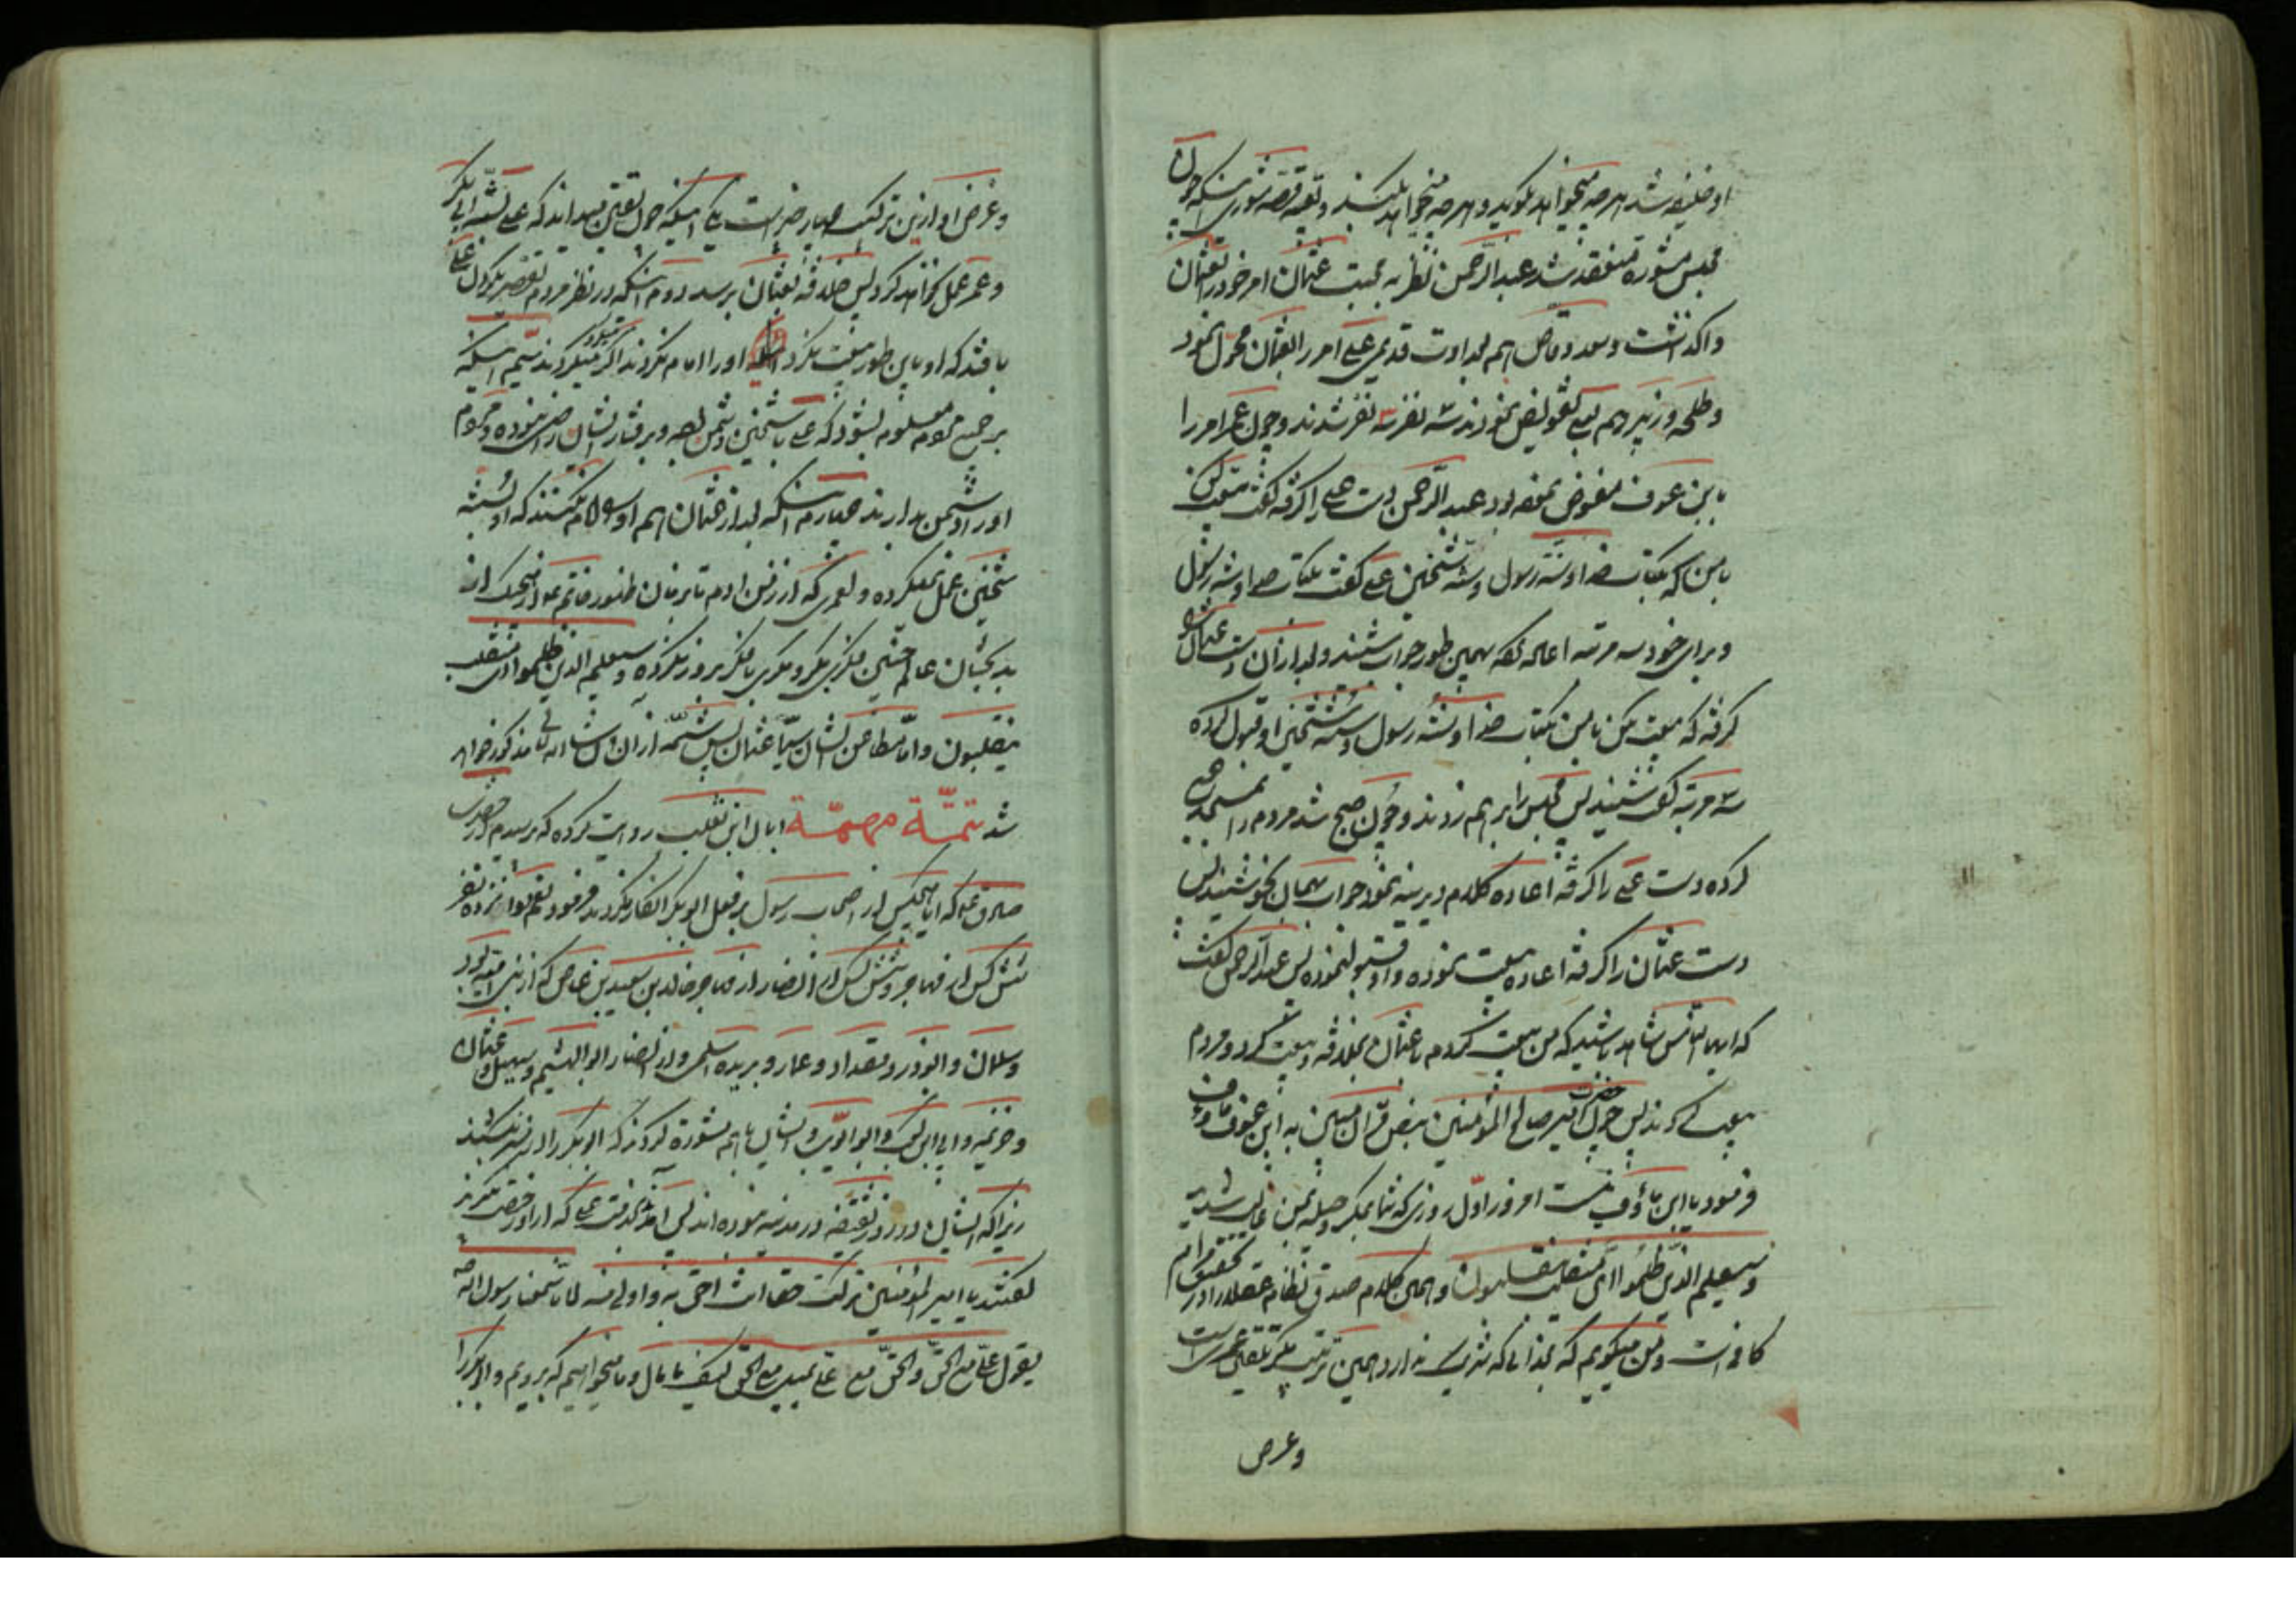 او خلیفه شد هر چه میخواهد بگوید و هر چه میخواهد بکند و تتمه قصه شوری اینکه چون
مجلس مشوره منعقد شد عبدالرحمن نظر به محبت عثمان امر خود را بعثمان
واگذاشت و سعد وقاص هم بعداوت قدیمی علی امر را بعثمان محول نمود
و طلحه و زبیر هم بعلی تفویض نمودند سه نفر سه نفر شدند و چون عمر امر را
بابن عوف مفوض نموده بود عبدالرحمن دست علی را گرفته گفت بیعت کن
با من که بکتاب خدا و سنة رسول و سنة شیخین علی گفت بکتاب خدا و سنة رسول
و برای خود سه مرتبه اعاده نموده بهمین طور جواب شنید و بعد از آن دست عثمان را
گرفته که بیعت بکن با من بکتاب خدا و سنة رسول و سنة شیخین او قبول کرده
سه مرتبه شنید پس مجلس را برهم زدند و چون صبح شد مردم را بمسجد جمع
کرده دست علی را گرفته اعاده کلام دیرینه نمود جواب همان نحو شنید پس
دست عثمان را گرفته اعاده بیعت نموده و او قبول نموده پس عبدالرحمن گفت
که ایها الناس شاهد باشید که من بیعت کردم با عثمان بخلافة و بیعت کرد و مردم
بیعت کردند پس چون حضرت امیر صالح المؤمنین بنص قرآن مبین به ابن عوف
فرمود یا ابن امروز اول روزی که شما بمکر و حیله بمن غالب شدید
و سیعلم الذین ظلموا ای منقلب ینقلبون و همین کلام صدق نظام عقلا را در تحقیق مرام
کافی است و من میگویم که بخدائی که شریک ندارد همین ترتیب مکر عمر است
وعرض
وغرض او ازین ترکیب چهار چیز است یکی اینکه چون بیقین میداند که علی بسنة ابی بکر
و عمر عمل نخواهد کرد پس خلافة بعثمان برسد دوم اینکه در نظر مردم تقصیر بگردن علی
باشد که او باین طور بیعت نکرد او را امام نکردند اگر میکرد میکردند سیم اینکه
بر جمیع مردم معلوم بشود که علی با شیخین دشمن بوده و برفتار ایشان راضی نبوده و مردم
او را دشمن بدارند چهارم اینکه بعد از عثمان هم او را امام نکنند که او بسنة
شیخین عمل نمیکرده و لعمری که از زمن آدم تا زمان ظهور خاتم هیچیک از
بدبختان عالم چنین فکری بکری و مکری با فکر بروز نکرده و سیعلم الذین ظلموا ای منقلب
ینقلبون و اما مطاعن ایشان سیما عثمان پس شمه از آن ان شاء الله تعالی مذکور خواهد
شد تتمّة مهمّة ابان ابن تغلب روایت کرده که پرسیدم از حضرت
صادق ع که آیا هیچکس از اصحاب رسول بر فعل ابوبکر انکار نکردند فرمود نعم دوازده نفر
شش کس از مهاجر و شش کس از انصار از مهاجر خالد بن سعید بن عاص که از بنی امیه بود
و سلمان و ابوذر و مقداد و عمار و بریده اسلمی و از انصار ابو الهیثم و سهیل و عثمان
و خزیمه و ابی ابن کعب و ابو ایوب و ایشان باهم مشورة کردند که ابوبکر را از منبر بکشند
زیراکه ایشان در روز سقیفه در مدینه نبوده اند پس آمدند بخدمت علی که از او رخصت بگیرند
گفتند یا امیر المؤمنین ترکت حقا انت احق به و اولی منه لانا سمعنا رسول الله ص
یقول علی مع الحق و الحق مع علی یمیل مع الحق کیف ما مال و ما میخواهیم که برویم و ابوبکر را